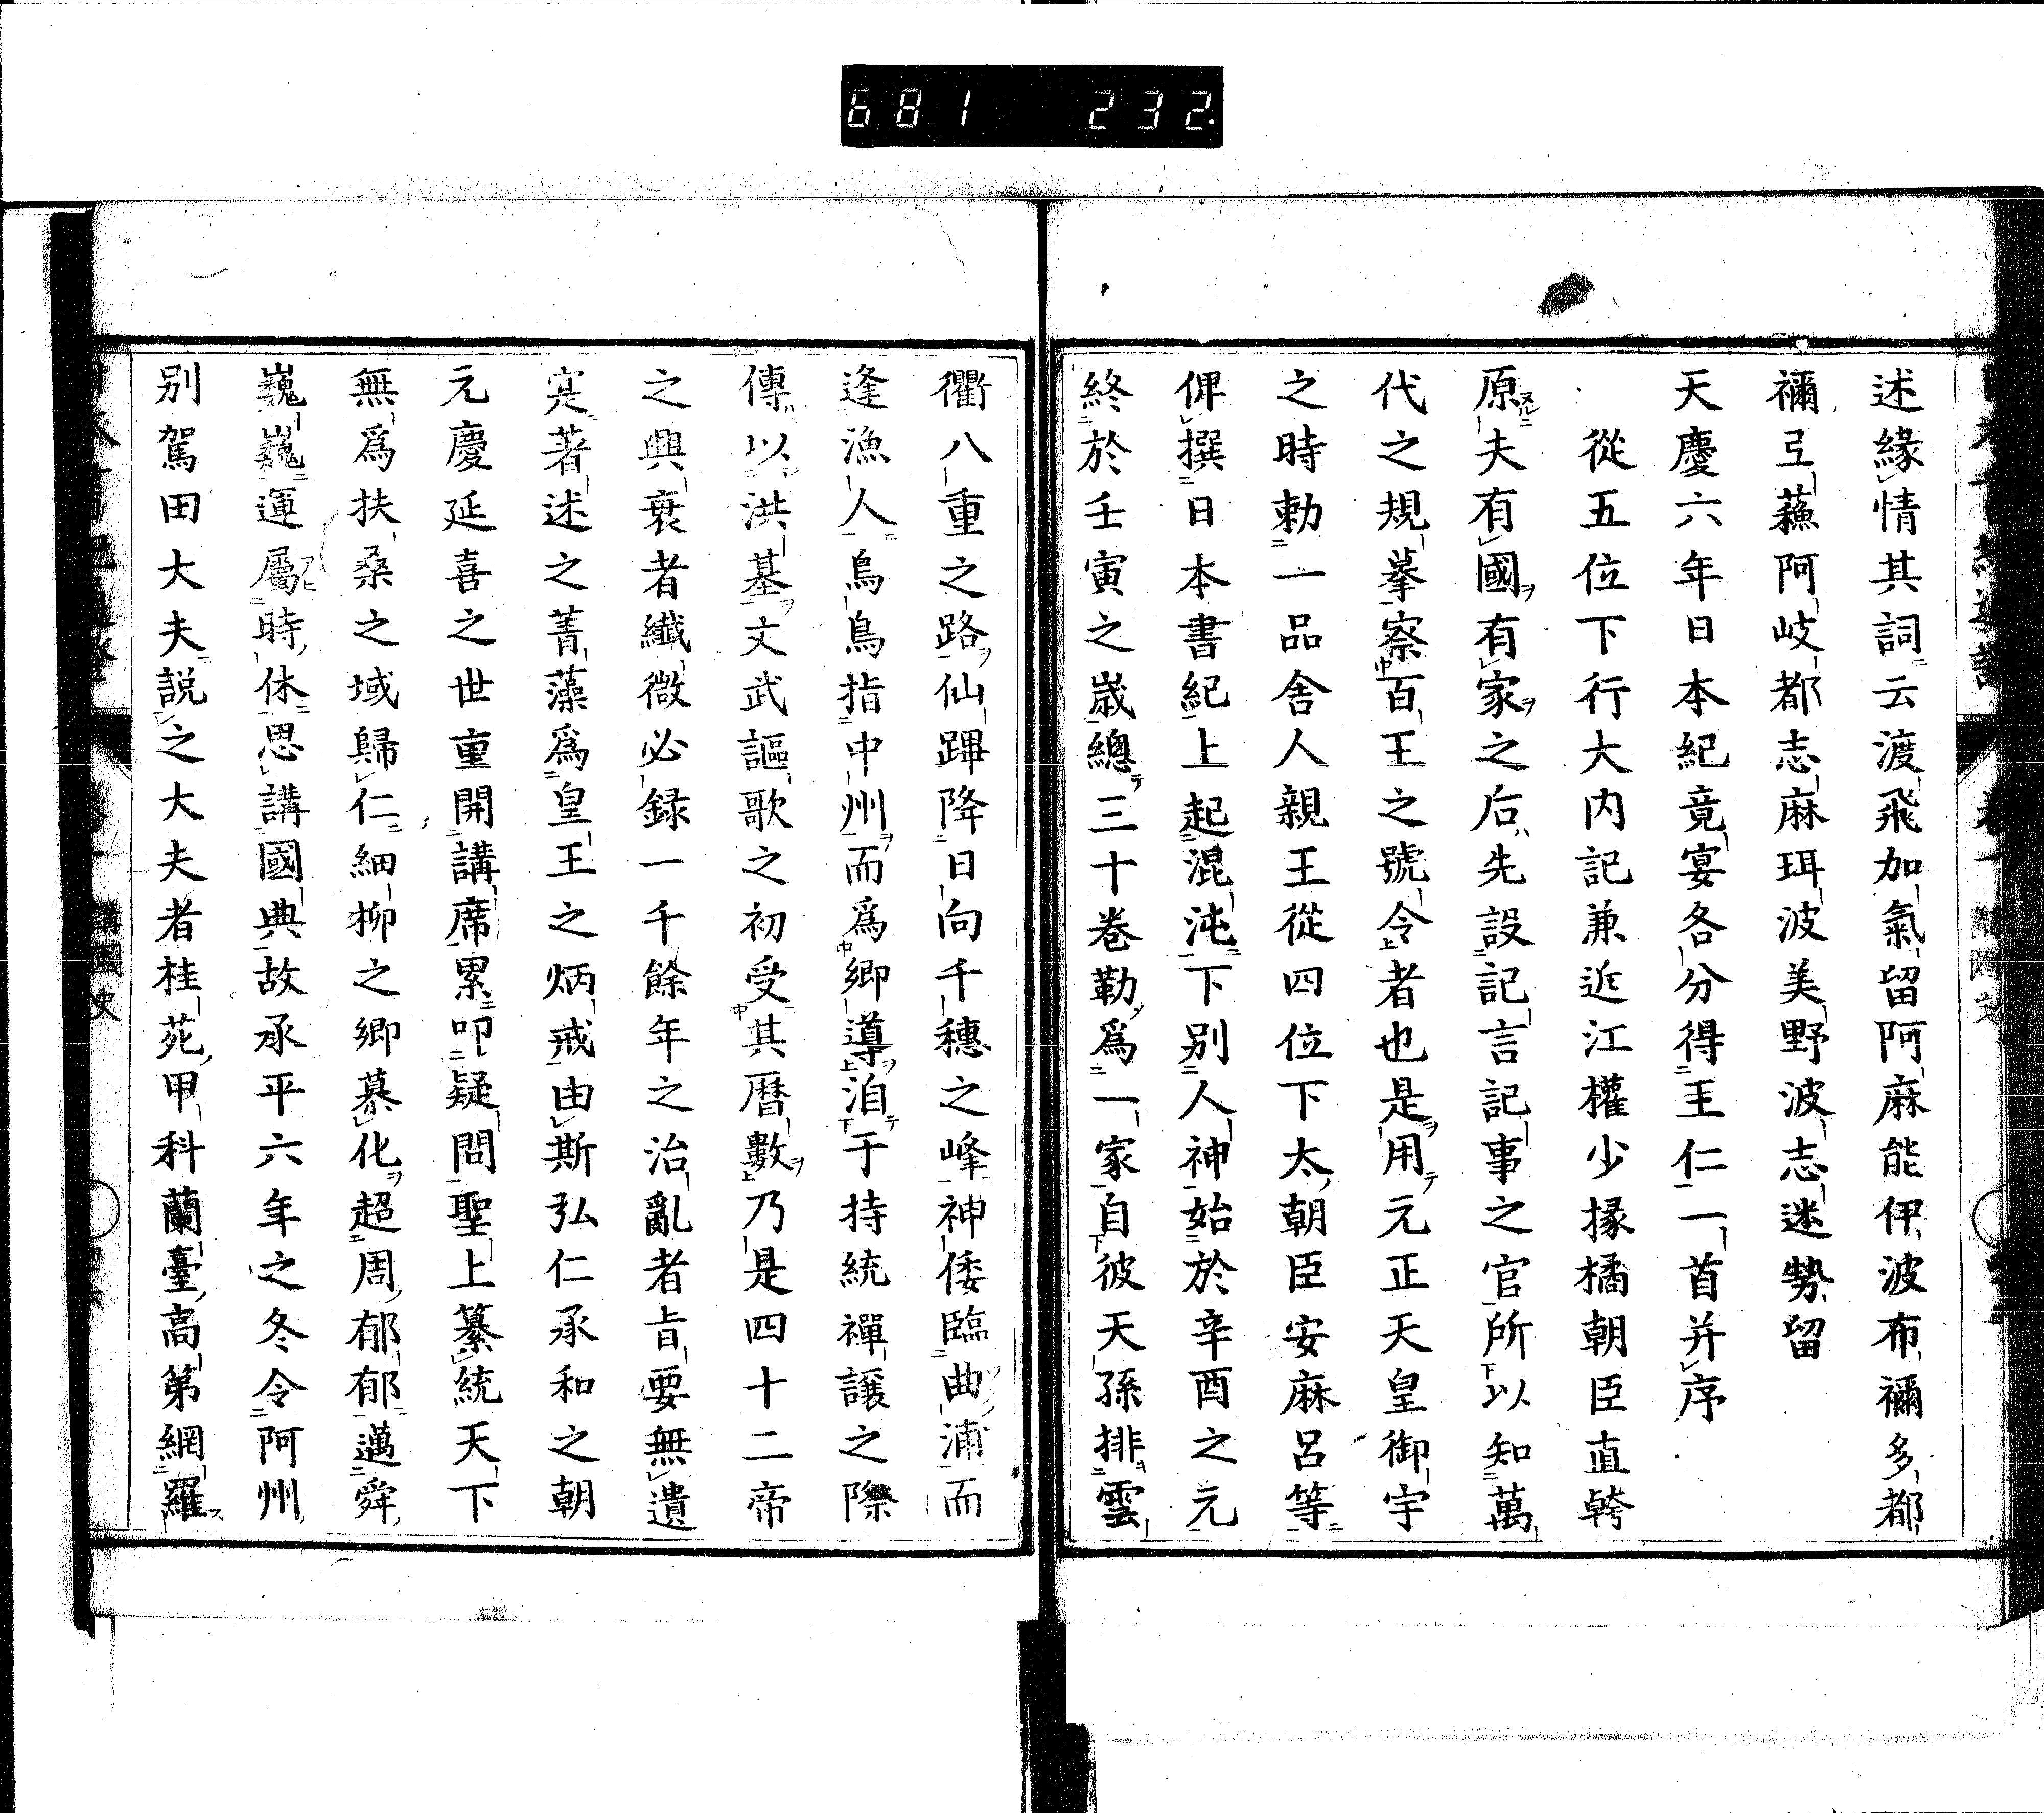 681 232.
述緣情其詞云渡飛加氣留阿麻能伊波布禰多都
禰弖蘓阿岐都志麻珥波美野波志迷勢留
天慶六年日本紀竟宴各分得王仁一首并序
從五位下行大内記兼近江權少掾橘朝臣直幹
原夫有國有家之后先設記言記事之官所以知萬
代之規摹察百王之號令者也是用元正天皇御宇
之時勅一品舍人親王從四位下太朝臣安麻呂等
俾撰日本書紀上起混沌下别人神始於辛酉之元
終於壬寅之歳總三十卷勒爲一家自彼天孫排雲
衢八重之路仙蹕降日向千穗之峰神倭臨曲浦而
逢漁人烏烏指中州而爲鄉導洎于持統禪讓之際
傳以洪基文武謳歌之初受其曆數乃是四十二帝
之興衰者纖微必録一千餘年之治亂者旨要無遺
寔著述之菁藻爲皇王之炳戒由斯弘仁承和之朝
元慶延喜之世重開講席累叩疑問聖上纂統天下
無爲扶桑之域歸仁細柳之鄉慕化超周郁郁邁舜
巍巍運屬時休思講國典故承平六年之冬令阿州
别駕田大夫説之大夫者桂苑甲科蘭臺高第網羅
講國史